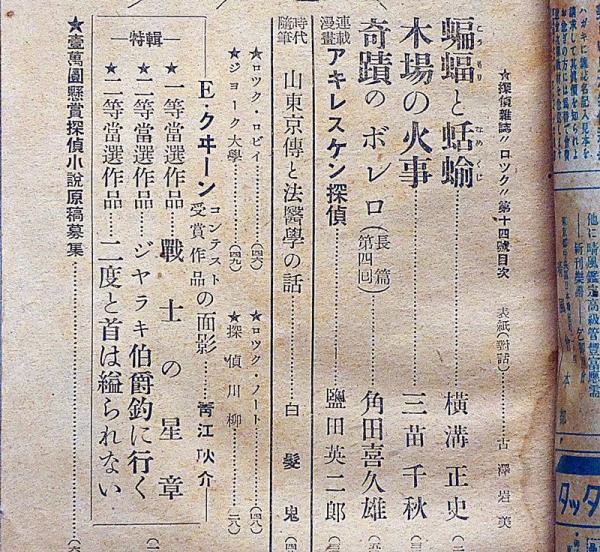 ★探偵雜誌〃ロツク〃第十四號目次
表紙(對話)……古澤岩美
蝙蝠と蛞蝓……横溝正史
こうもり なめくじ
木場の火事……三苗千秋
奇蹟のボレロ(長篇第四囘)……角田喜久雄
連載漫畫 アキレスケン探偵……鹽田英二郎
時代隨筆 山東京傳と法醫學の話……白髮鬼
★ロツク・ロビイ……(四六)
★ロツク・ノート……(四八)
★ジヨーク大學……(四九)
★探偵川柳……(二八)
E・クヰーンコンテスト受賞作品の面影……靑江耿介
―特輯―
★一等當選作品…戰士の星章
★二等當選作品…ジヤラキ伯爵釣に行く
★二等當選作品…二度と首は縊られない
★壹萬圓懸賞探偵小說原稿募集
ハガキに雜誌名記入見本を
他に晴風鑑定高級管豐富應需
タッタ